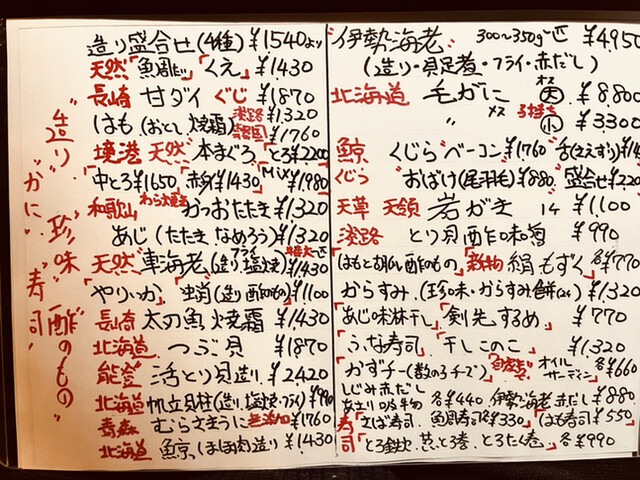 造り盛合せ(4種)¥1540より
天然「魚周」「くえ」¥1430
長崎 甘ダイ ぐじ ¥1870
はも(おとし 焼霜) 淡路¥1320
韓国¥1760
境港 天然 本まぐろ「とろ¥2200
中とろ¥1650」「赤身¥1430」MiX¥1,980
和歌山 わら焼き かつおたたき ¥1,320
あじ(たたき なめろう)¥1320
天然 車海老(造り・塩焼・フライ)特大一匹¥1430
「やりいか」(造り 酢のもの)¥1100
長崎 太刀魚 焼霜 ¥1430
北海道 つぶ貝 ¥1870
能登 活とり貝造り ¥2420
北海道 帆立貝柱(造り、塩焼・フライ)¥990
青森 むらさきうに 無添加 ¥1760
北海道 鯨っ ほほ肉造り ¥1430
造り かに 珍味 寿司 酢のもの
"伊勢海老" 300〜350g 一匹 ¥4,950
(造り・具足煮・フライ・赤だし)
北海道 毛がに オス 大 ¥8,800
〃 メス 子持ち 小 ¥3300
鯨 くじら"ベーコン"¥1,760 舌(さえずり)
くじら "おばけ(尾羽毛)¥880 盛合せ¥220
天草 天領 岩がき 1ヶ ¥1,100
淡路 とり貝酢味噌 ¥990
「はもと胡瓜 酢のもの」「新物 絹もずく」各¥770
からすみ(珍味・からすみ餅)¥1320
「あじ味淋干し」「剣先するめ」¥770
「ふな寿司」「干しこのこ」¥1,320
「かずチー(数の子チーズ)」「自家製 オイルサーディン」各¥660
しじみ赤だし
あさり 各¥440 伊勢海老 赤だし ¥880
寿司「さば寿司 ¥330」「はも寿司¥550」
「とろ鉄火 とろ巻 とろたく巻」各¥990